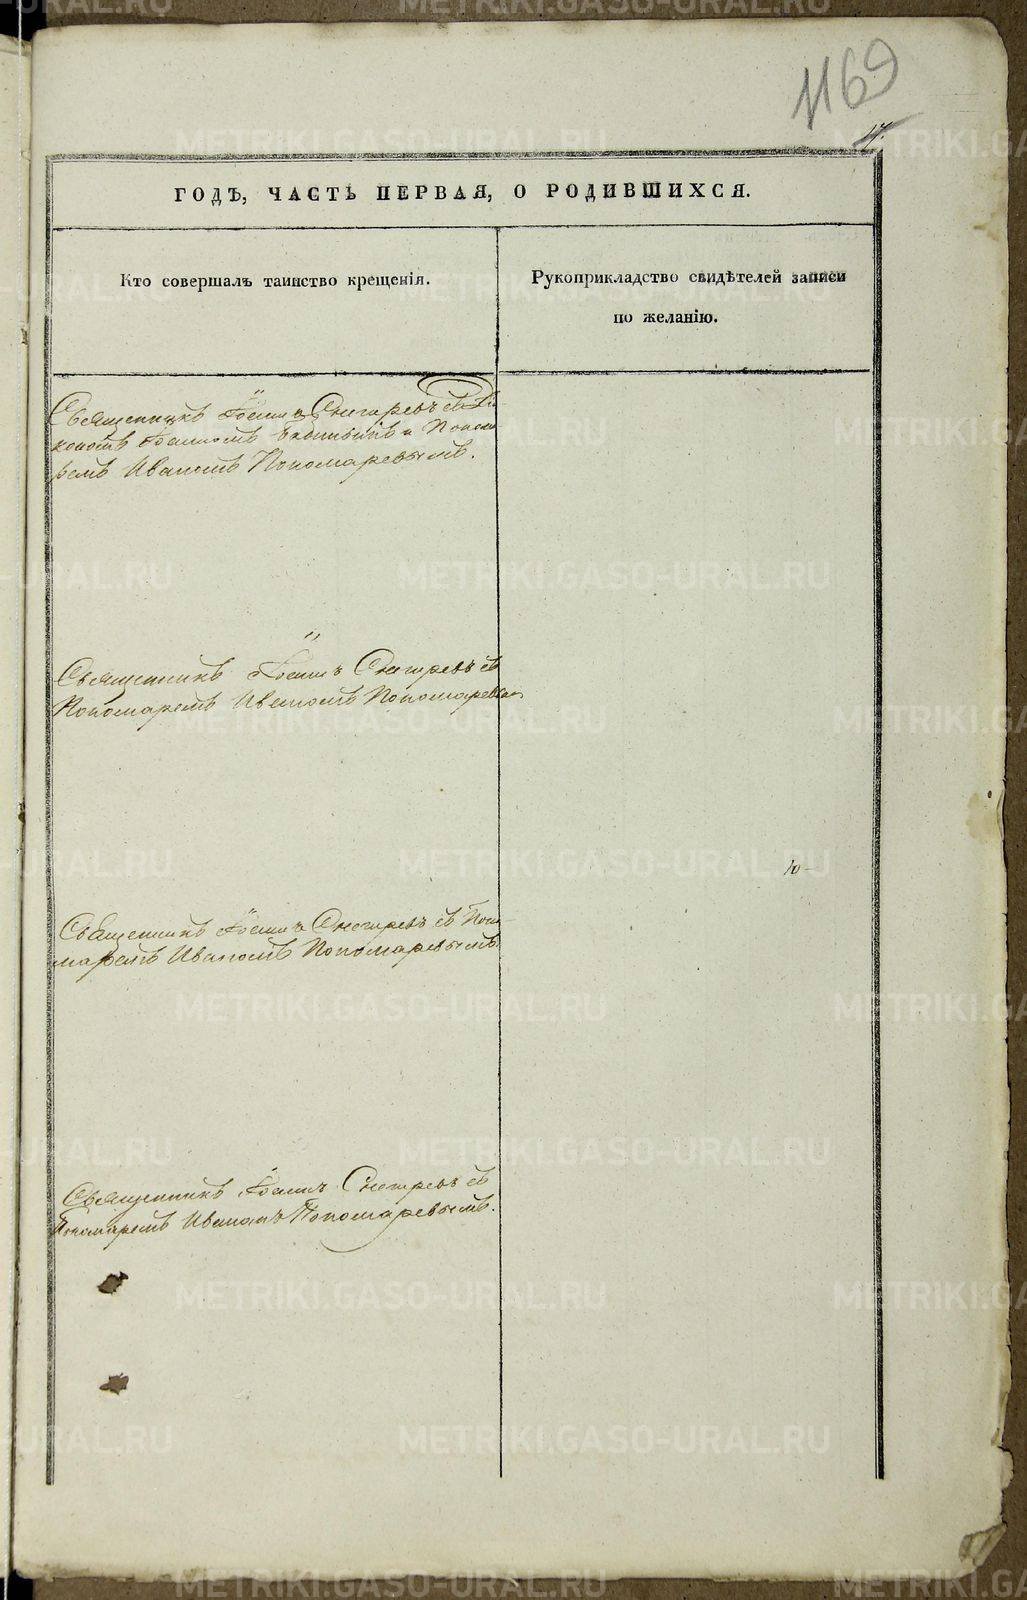 1169
17.
ГОДЪ, ЧАСТЬ ПЕРВАЯ, О РОДИВШИХСЯ.
Кто совершалъ таинство крещенія.
Рукоприкладство свидѣтелей записи
по желанію.
Священникъ Іоаннъ Снегиревъ съ Діа
кономъ Іоанномъ и Понома
ремъ Иваномъ Пономаревымъ.
Священникъ Іоаннъ Снегиревъ съ
Пономаремъ Иваномъ Пономаревым
Священникъ Іоаннъ Снегиревъ съ Поно
маремъ Иваномъ Пономаревымъ.
Священникъ Іоаннъ Снегиревъ съ
Пономаремъ Иваномъ Пономаревымъ.
METRIKI.GASO-URAL.RU